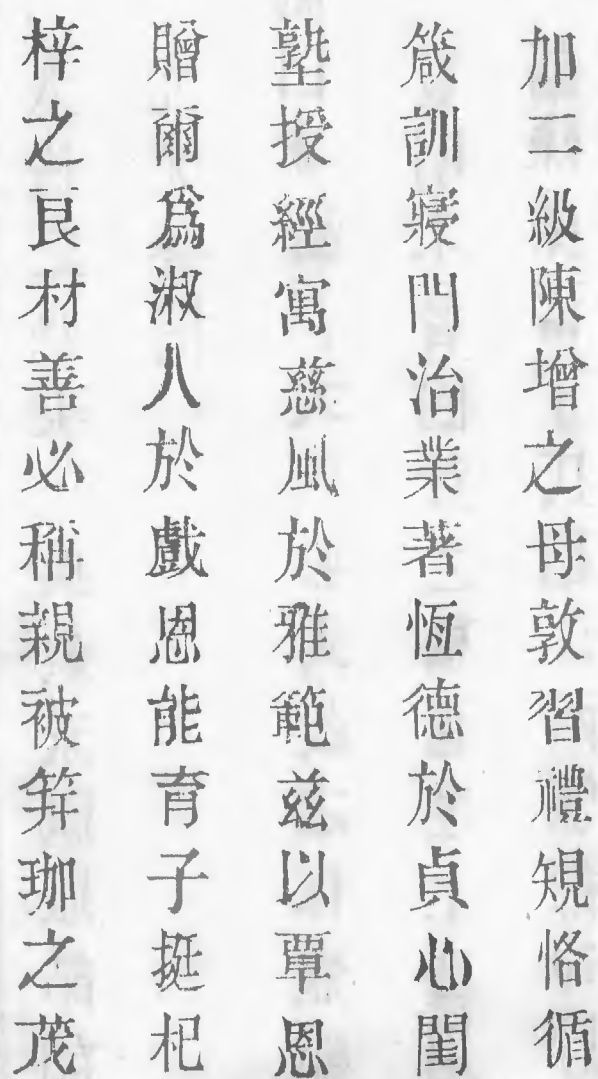 加二級陳增之母敦習禮規恪循
箴訓寢門治業著恆德於貞心閨
塾授經寓慈風於雅範茲以覃恩
贈爾爲淑人於戲恩能育子挺杞
梓之良材善必稱親被笄珈之茂